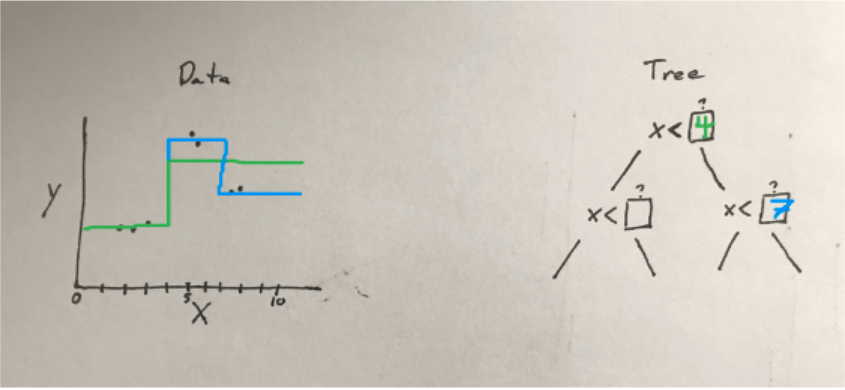 Data
Y
0 5 10
X
Tree
?
x< 4
?
x<
?
x< 7